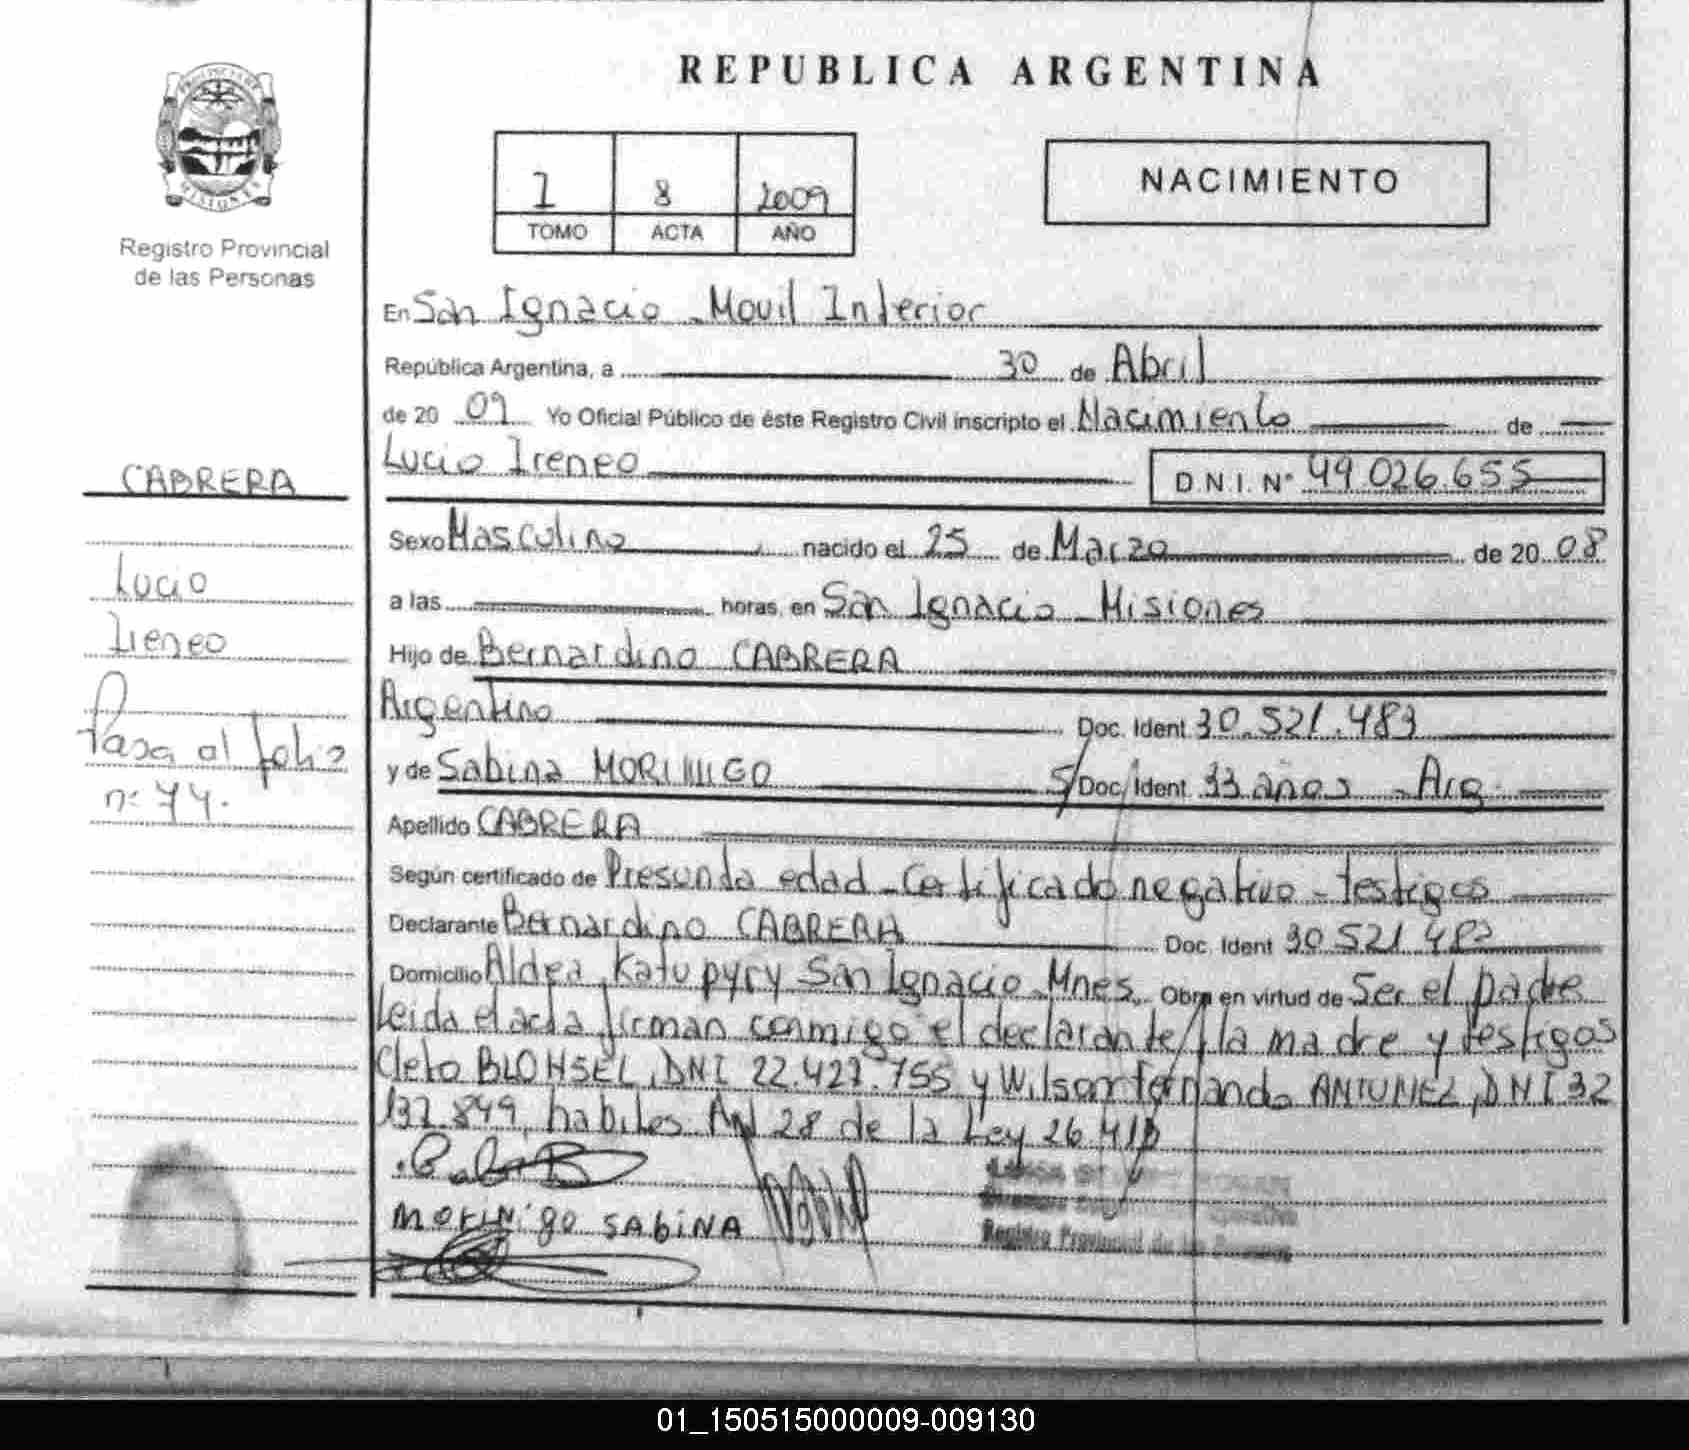 REPUBLICA ARGENTINA
1 8 2009
TOMO ACTA AÑO
NACIMIENTO
Registro Provincial
de las Personas
MISIONES
CABRERA
Lucio
Ireneo
Pasa al folio
nº 74.
En San Ignacio - Movil Interior
República Argentina, a 30 de Abril
de 20 09 Yo Oficial Público de éste Registro Civil inscripto el Nacimiento de
Lucio Ireneo D.N.I. Nº 49.026.655
Sexo Masculino nacido el 25 de Marzo de 20 08
a las horas, en San Ignacio - Misiones
Hijo de Bernardino CABRERA
Argentino Doc. Ident. 30.521.483
y de Sabina MORINIGO S/Doc. Ident. 33 años - Arg.
Apellido CABRERA
Según certificado de Presunta edad - Certificado negativo - testigos
Declarante Bernardino CABRERA Doc. Ident. 30.521.483
Domicilio Aldea Katupyry San Ignacio Mnes. Obra en virtud de Ser el padre
leida el acta firman conmigo el declarante, la madre y testigos
Cleto DNI 22.427.755 y Wilson Fernando ANTUNEZ, DNI 32
137.849, habiles. Art 28 de la Ley 26.413
MORINigO SABINA
Registro Provincial de las Personas
01_150515000009-009130